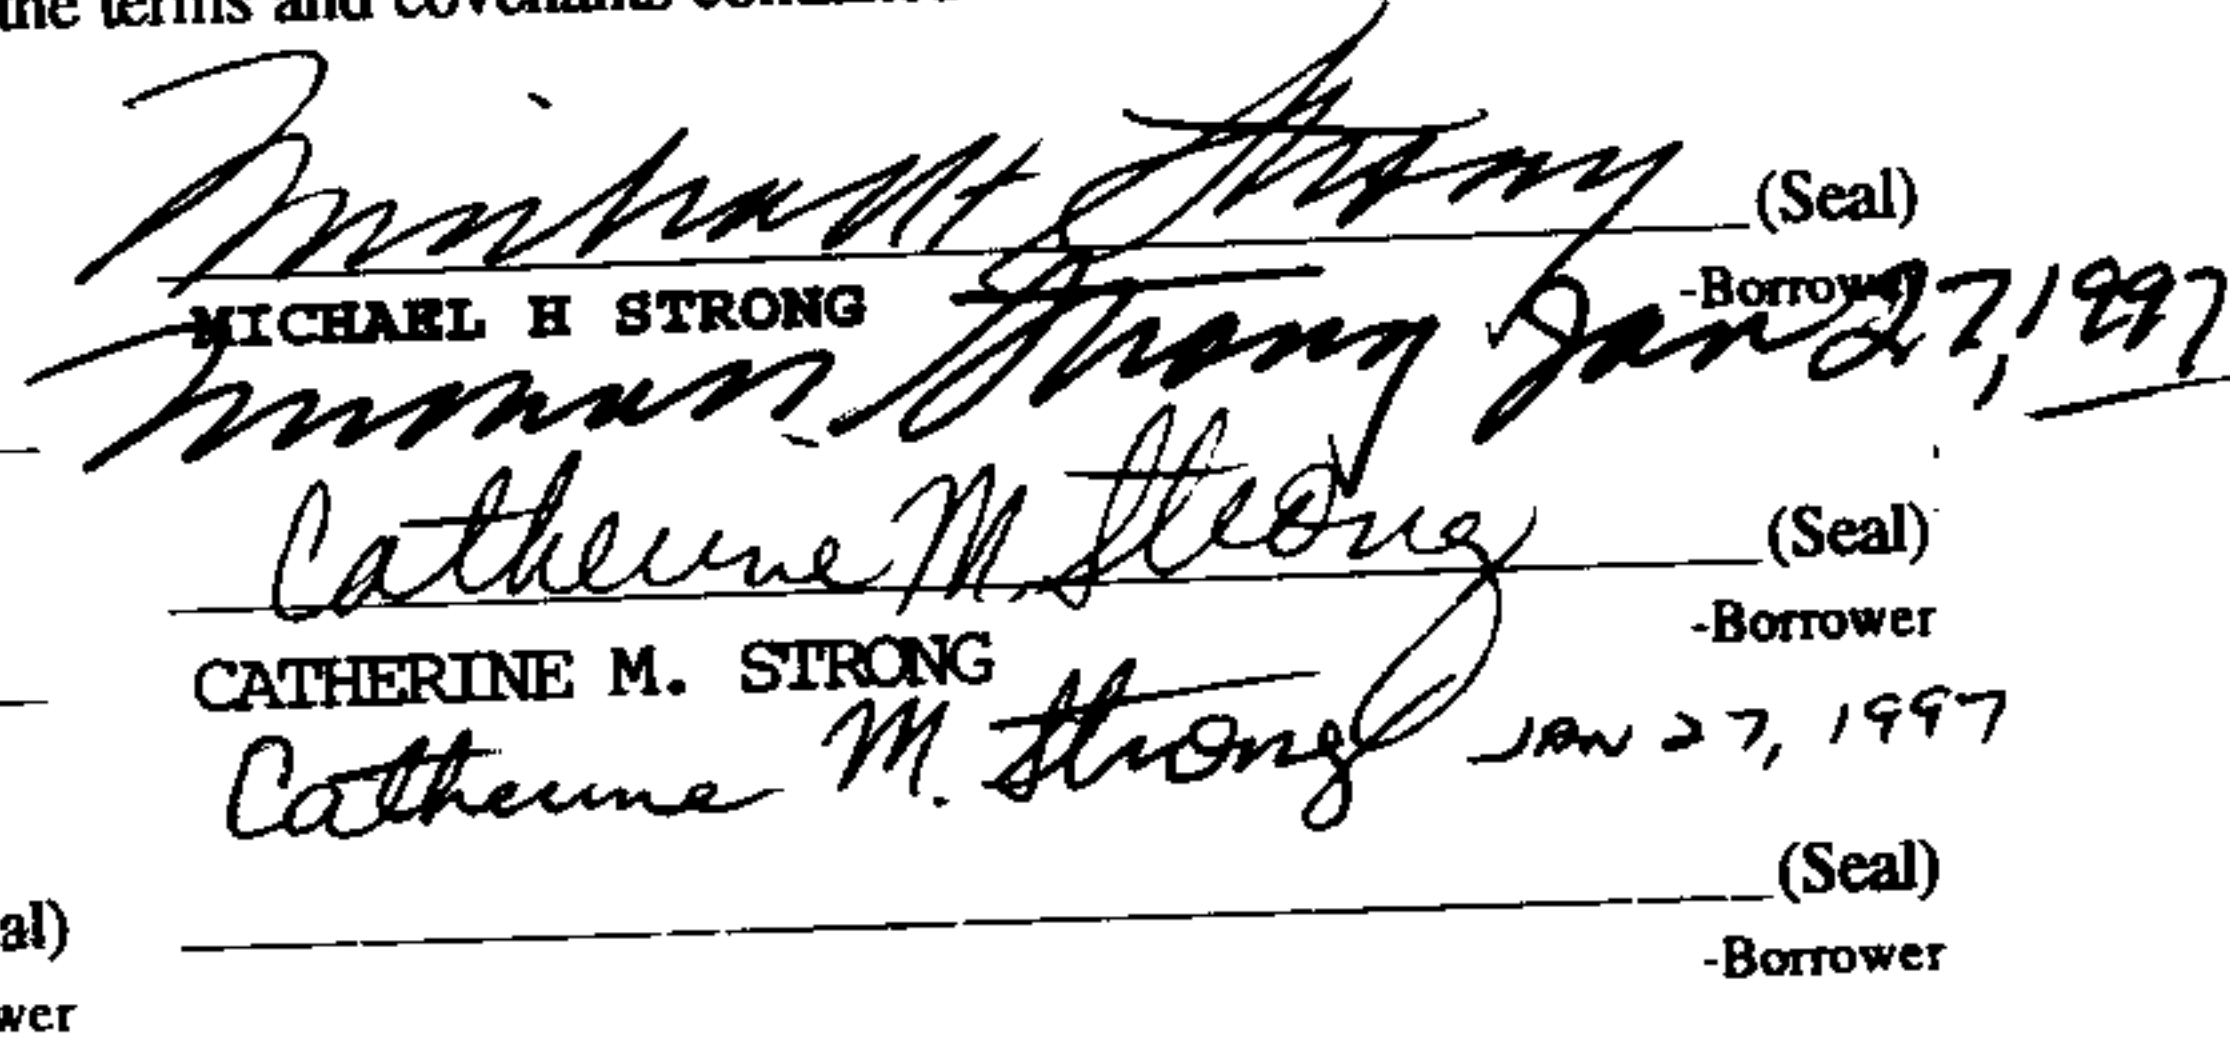 the terms and covenants
Michael H Strong (Seal)
-Borrower
MICHAEL H STRONG
Strong Jan 27, 1997
Catherine M. Strong (Seal)
-Borrower
CATHERINE M. STRONG
Catherine M. Strong JAN 27, 1997
(Seal)
al)
-Borrower
wer